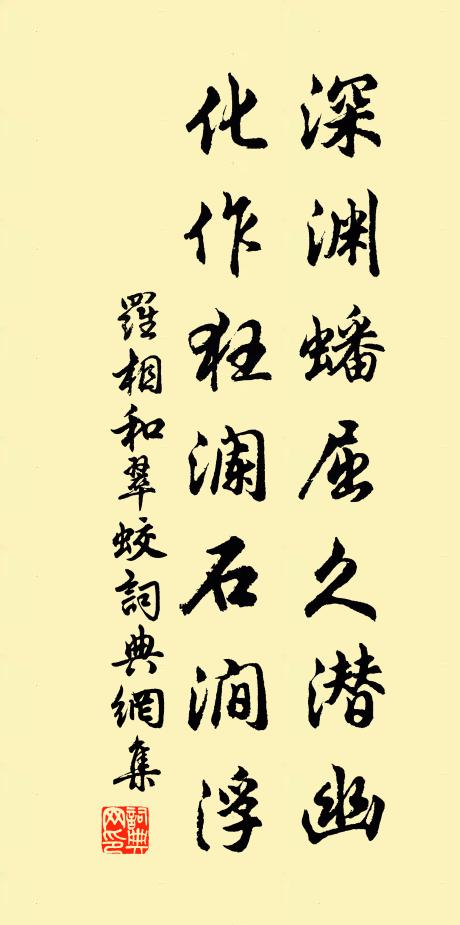 深渊蟠屈久潜幽
化作狂澜石涧浮
羅相和翠蛟詞典網集
詞典网印